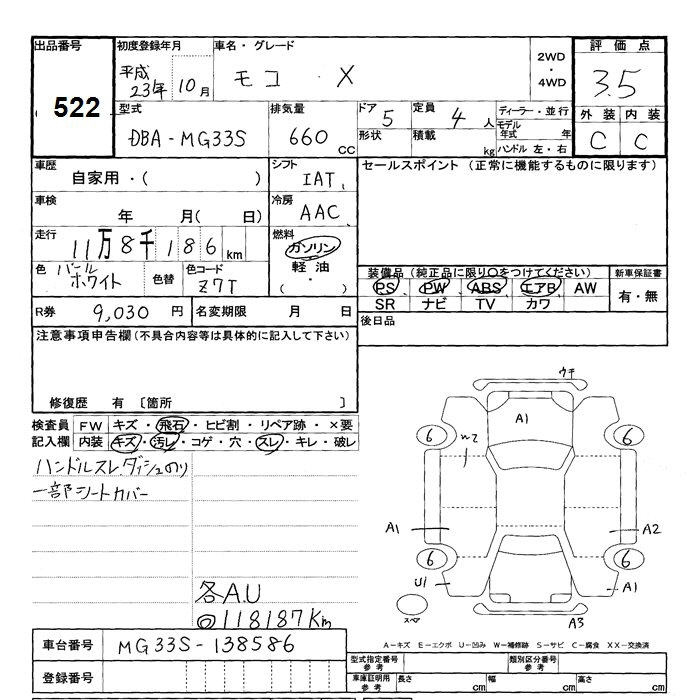 出品番号 初度登録年月 車名・グレード 2WD ・ 4WD 評価点
522 平成 23年 10月 モコ X 3.5
型式 排気量 ドア 5 定員 4人 ディーラー・並行 外装 内装
DBA-MG33S 660 CC 形状 積載 kg モデル年式 年 ハンドル 左・右 C C
車歴 シフト セールスポイント (正常に機能するものに限ります)
自家用・( ) IAT
車検 冷房
年 月( 日) AAC
走行 燃料
11万8千186km ガソリン
色 パール ホワイト 色替 色コード Z7T 軽油 ( ・ )
装備品 (純正品に限り○をつけてください) 新車保証書
PS PW ABS エアB AW 有・無
SR ナビ TV カワ
R券 9,030 円 名変期限 月 日
後日品
注意事項申告欄 (不具合内容等は具体的に記入して下さい)
修復歴 有 〔箇所 〕
検査員 FW キズ・飛石・ヒビ割・リペア跡・×要
記入欄 内装 キズ・汚レ・コゲ・穴・スレ・キレ・破レ
ハンドルスレ、ダッシュのり
一部シートカバー
各A.U
◎118187Km
ウチ
A1
6 6
A1 A2
6 6
U1 A1
スペア
A3
車台番号 MG33S-138586
A-キズ E-エクボ U-凹み W-補修跡 S-サビ C-腐食 XX-交換済
登録番号
型式指定番号 参考 類別区分番号 参考
車庫証明用 参考 長さ cm 幅 cm 高さ cm